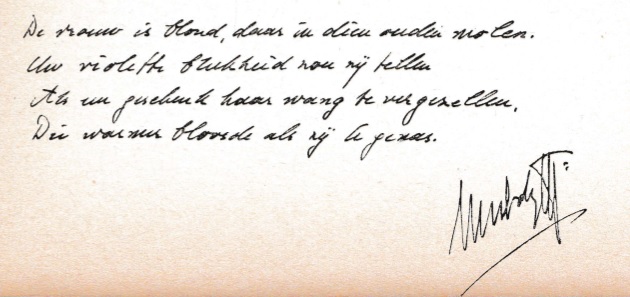 De vrouw is blond, daar in dien ouden molen.
Uw violette bleekheid zou zij tellen
Als een geschenk haar wang te vergezellen,
Die warmer bloosde als zij U genas.